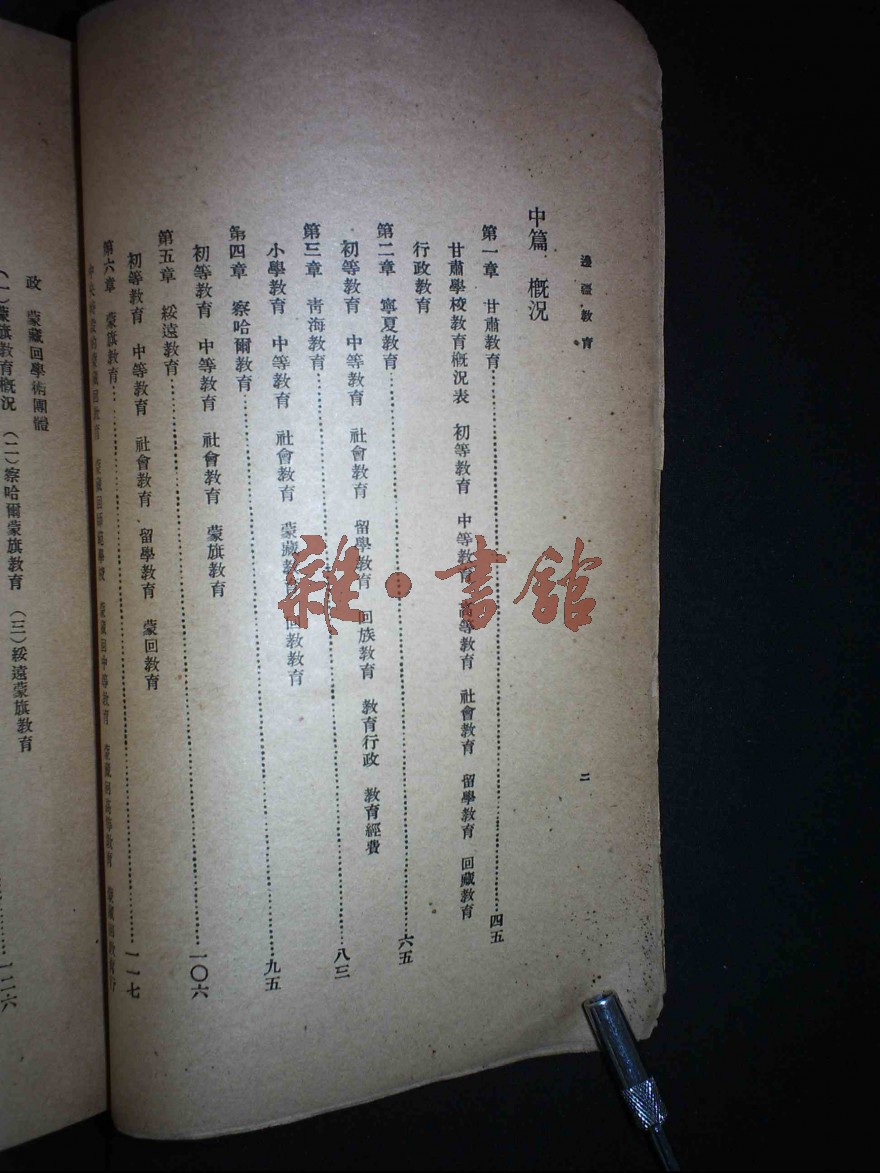 邊疆教育
二
中篇 概況
第一章 甘肅教育 四五
甘肅學校教育概況表 初等教育 中等教育 高等教育 社會教育 留學教育 回藏教育
行政教育
第二章 寧夏教育 六五
初等教育 中等教育 社會教育 留學教育 回族教育 教育行政 教育經費
第三章 靑海教育 八三
小學教育 中等教育 社會教育 蒙藏教育 回教教育
第四章 察哈爾教育 九五
初等教育 中等教育 社會教育 蒙旗教育
第五章 綏遠教育 一〇六
初等教育 中等教育 社會教育 留學教育 蒙回教育
第六章 蒙旗教育 一一七
蒙藏回師範學校 蒙藏回中等教育 蒙藏回高等教育 蒙藏回教育行
政 蒙藏回學術團體
(一)蒙旗教育概況 (二)察哈爾蒙旗教育 (三)綏遠蒙旗教育
一二六
雜·書館